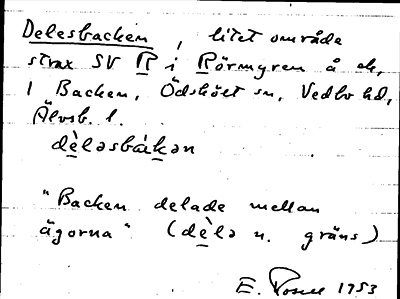 Delesbacken, litet område
strax SV R i Rörmyren å ek,
1 Backen, Ödskölt sn, Vedbo hd,
Älvsb. l.
dè̱ləsbáḵən
"Backen delade mellan
ägorna" (dè̱lə n. gräns)
E. 1953